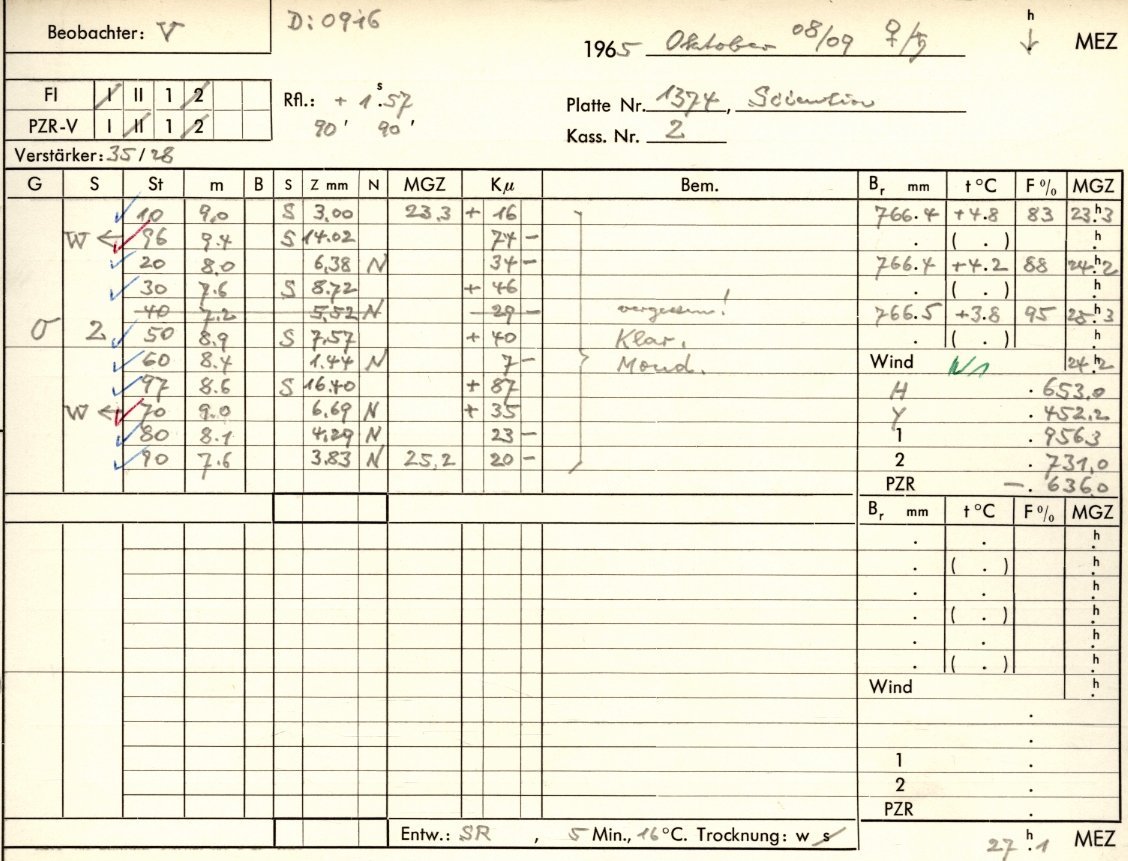 Beobachter: V
D: 0916
1965 Oktober 08/09 ♀/♄
h ↓ MEZ
FI I II 1 2
PZR-V I II 1 2
Verstärker: 35/28
Rfl.: + 1ˢ.57
90' 90'
Platte Nr. 1374,
Kass. Nr. 2
G S St m B S Z mm N MGZ Kμ Bem. Bᵣ mm t °C F % MGZ
10 9,0 S 3,00 23,3 + 16 766.4 +4.8 83 23ʰ.3
W ← 96 9.4 S 14.02 74 – . ( . ) ʰ.
20 8,0 6,38 N 34 – 766.4 +4.2 88 24ʰ.2
30 7.6 S 8.72 + 46 . ( . ) ʰ.
40 7.2 5,52 N 29 – vergessen! 766.5 +3.8 95 25ʰ.3
σ 2 50 8.9 S 7,57 + 40 Klar. . ( . ) ʰ.
60 8.4 1.44 N 7 – Mond. Wind N1 24ʰ.2
97 8.6 S 16.40 + 87 H . 653,0
W ← 70 9.0 6,69 N + 35 Y . 452,2
80 8.1 4,29 N 23 – 1 . 9563
90 7.6 3.83 N 25,2 20 – 2 . 731,0
PZR – . 6360
Bᵣ mm t °C F % MGZ
. . ʰ.
. ( . ) ʰ.
. . ʰ.
. ( . ) ʰ.
. . ʰ.
. ( . ) ʰ.
Wind ʰ.
.
.
1 .
2 .
PZR .
Entw.: SR , 5 Min., 16°C. Trocknung: w s
27ʰ.1 MEZ